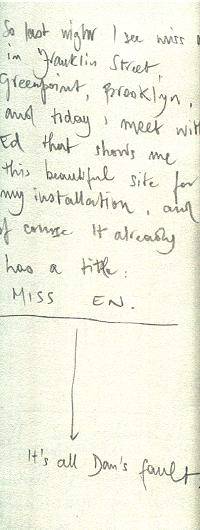 So last night I see miss
in Franklin Street,
Greenpoint, Brooklyn,
and today i meet with
Ed that shows me
this beautiful site for
my installation, and
of course It already
has a title:
MISS EN.
It's all Dan's fault